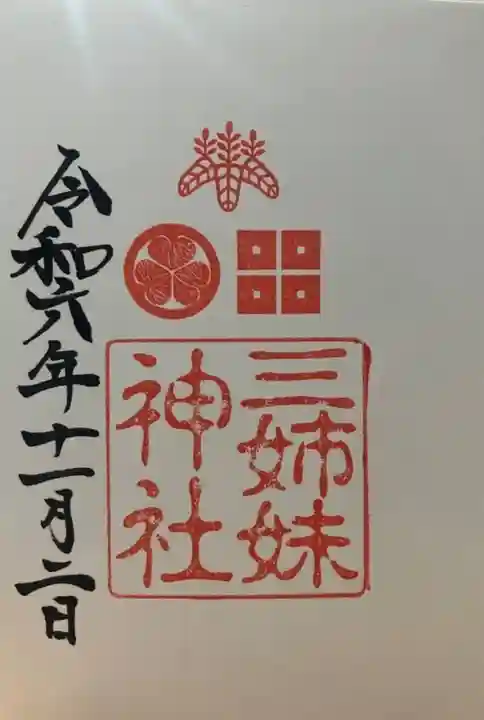 三姉妹
神社
令和六年十一月二日